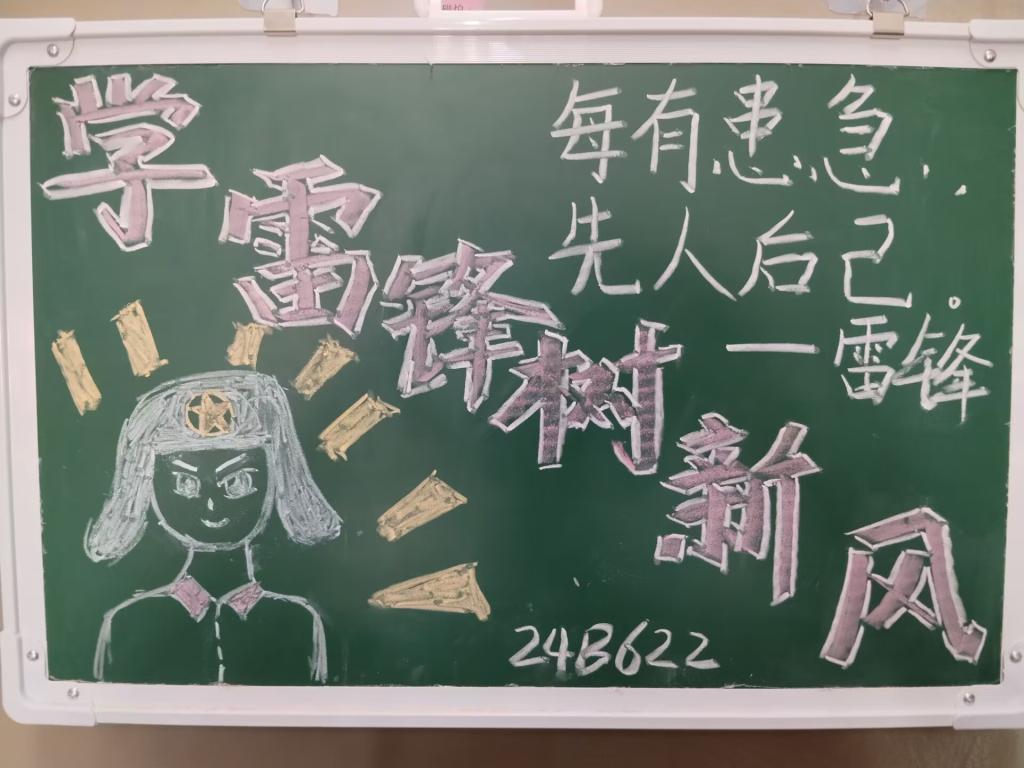 学雷锋树新风
每有患急，
先人后己。
—雷锋
24B622